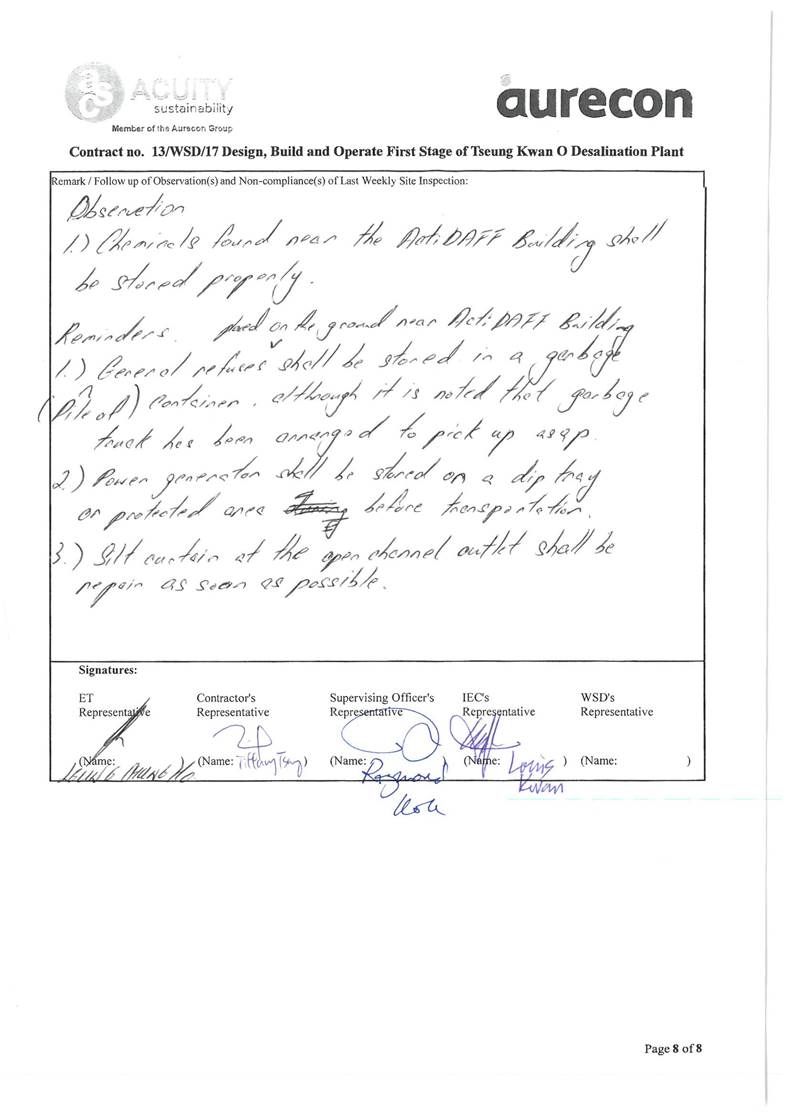 asc ACUITY
sustainability
Member of the Aurecon Group
aurecon
Contract no. 13/WSD/17 Design, Build and Operate First Stage of Tseung Kwan O Desalination Plant
Remark / Follow up of Observation(s) and Non-compliance(s) of Last Weekly Site Inspection:
Observation
1.) Chemicals found near the ActiDAFF Building shall
be stored properly.
Reminders. placed on the ground near ActiDAFF Building
1.) General refuses shall be stored in a garbage
(Pile of) container, although it is noted that garbage
truck has been arranged to pick up asap.
2.) Power generator shall be stored on a dip tray
or protected area before transportation.
3.) Silt curtain at the open channel outlet shall be
repair as soon as possible.
Signatures:
ET Contractor's Supervising Officer's IEC's WSD's
Representative Representative Representative Representative Representative
(Name: (Name: Tiffany Tsang) (Name: Raymond ) (Name: Louis ) (Name: )
Kwan
Page 8 of 8